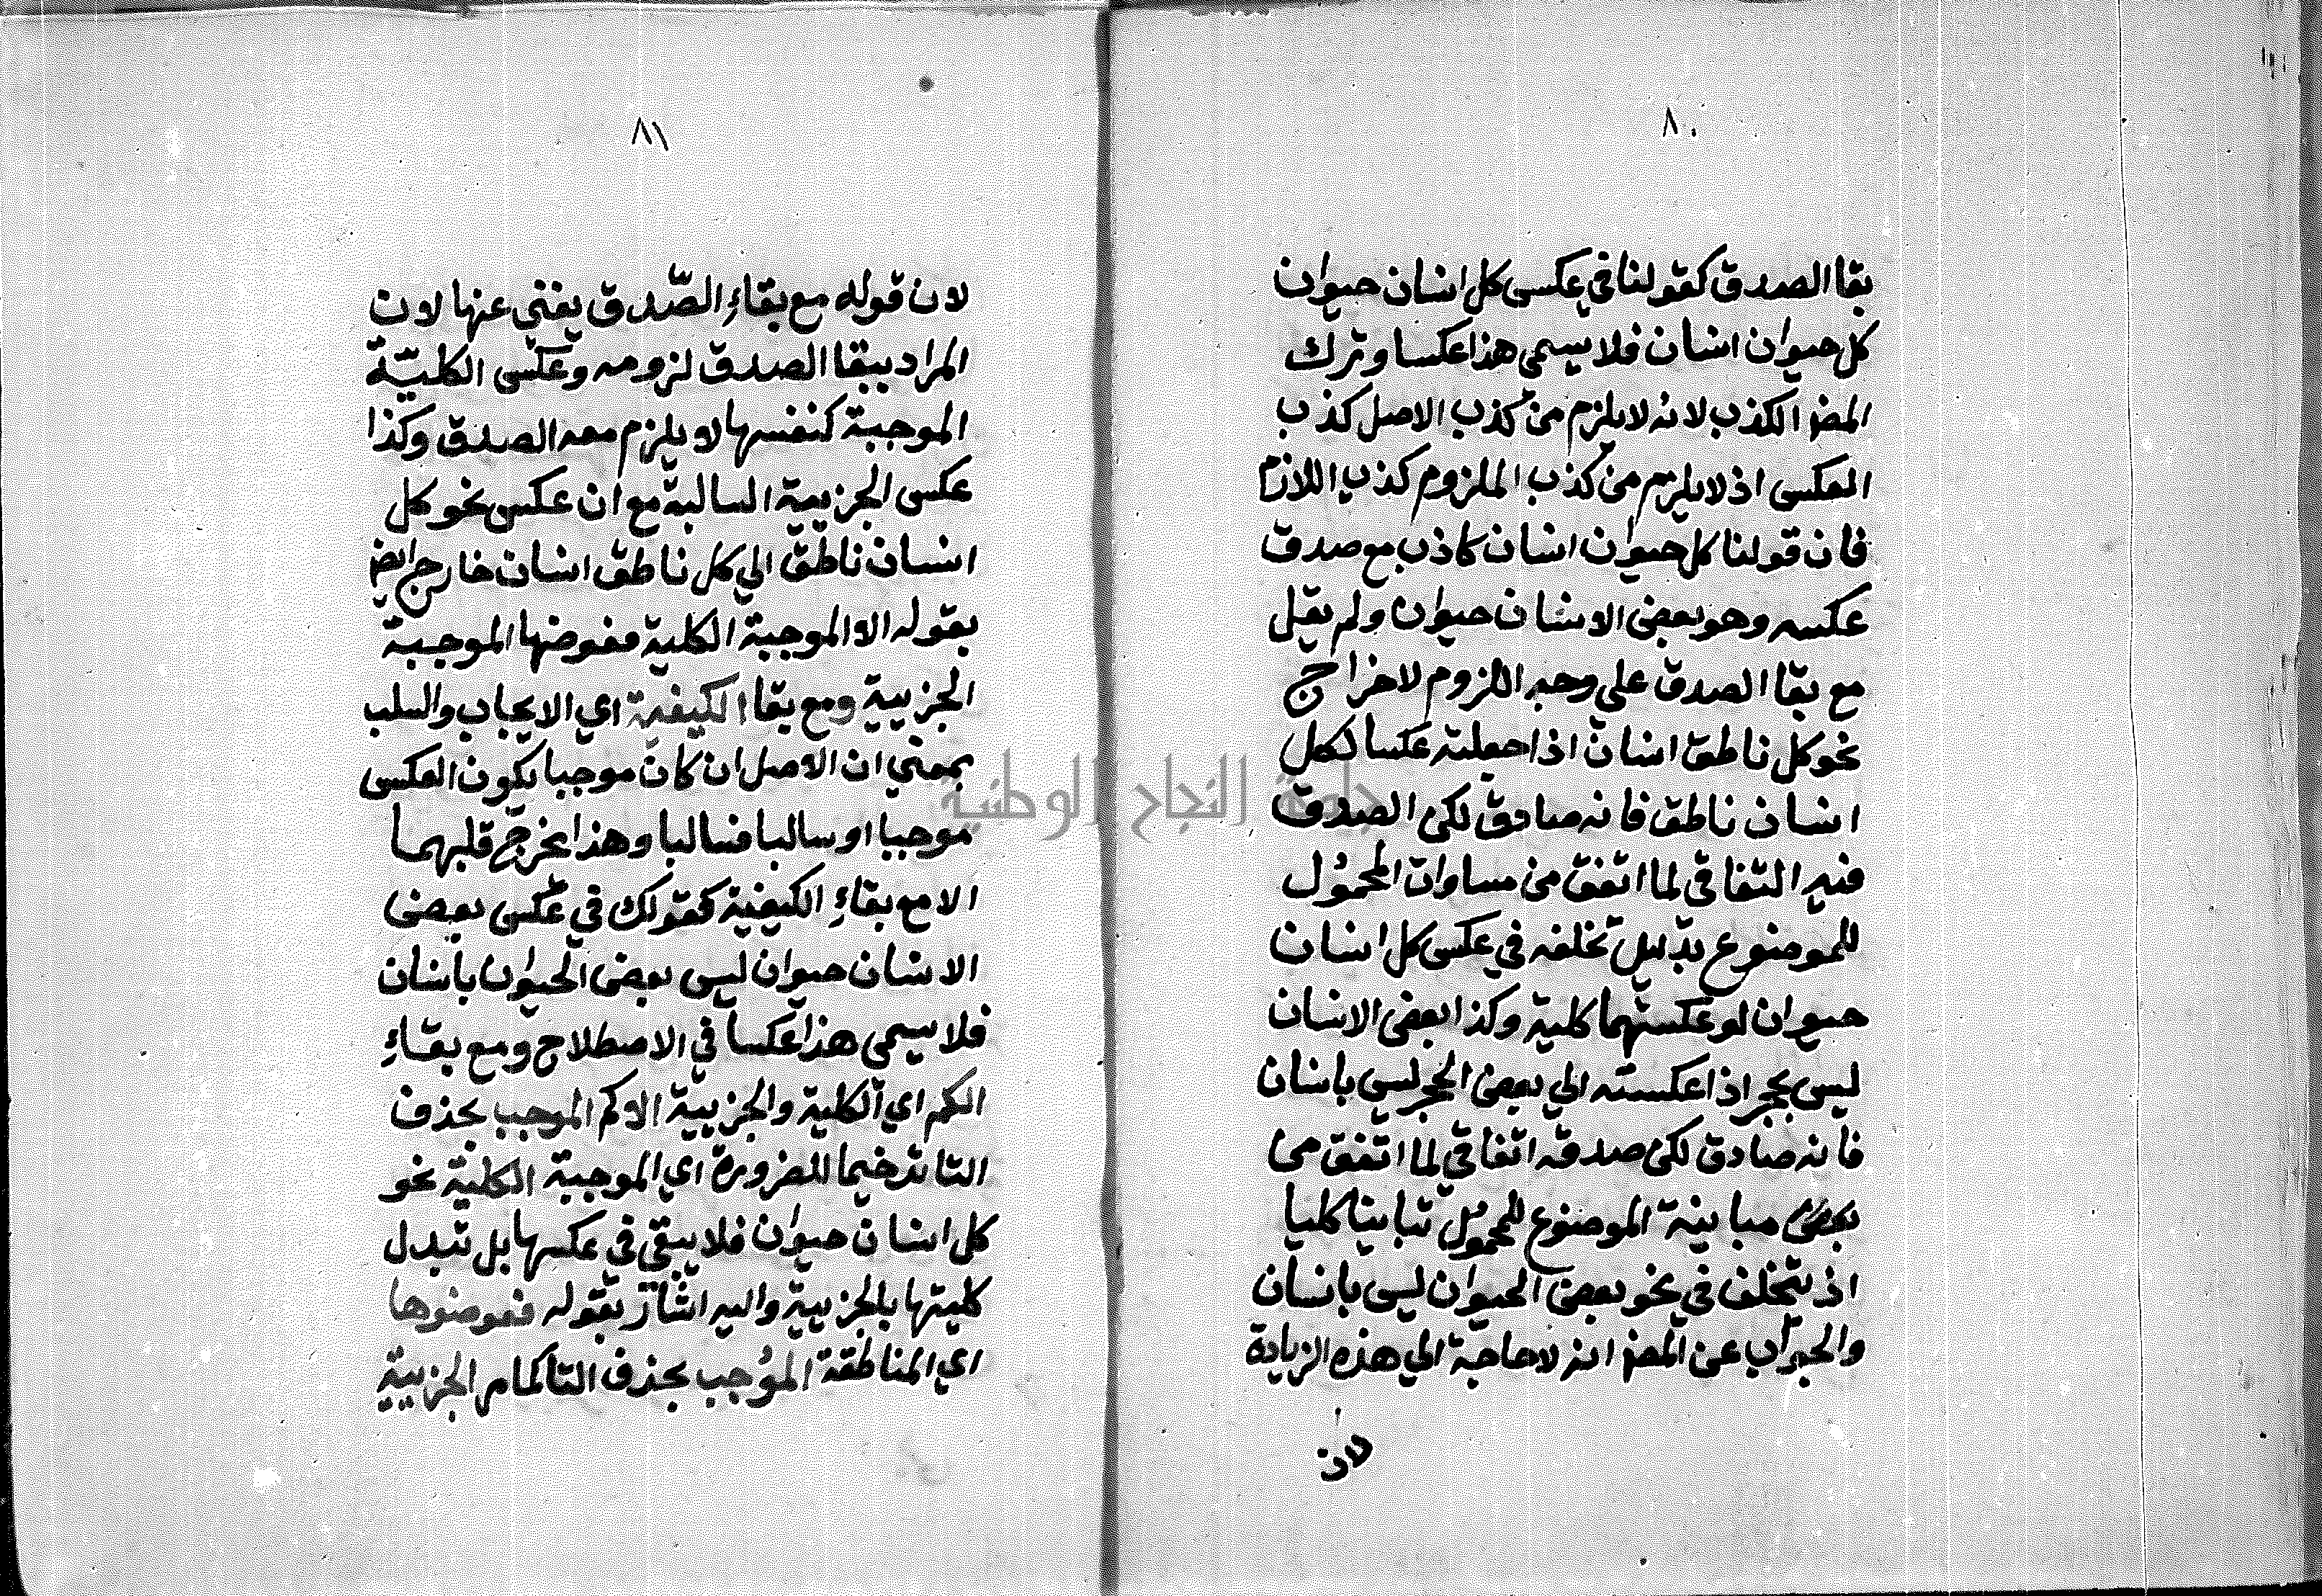 ٨٠
بقا الصدق كقولنا في عكس كل انسان حيوان
كل حيوان انسان فلا يسمى هذا عكسا وترك
المض الكذب لانه لا يلزم من كذب الاصل كذب
العكس اذ لا يلزم من كذب الملزوم كذب اللازم
فان قولنا كل حيوان انسان كاذب مع صدق
عكسه وهو بعض الانسان حيوان ولم يقل
مع بقا الصدق على وجه اللزوم لاخراج
نحو كل ناطق انسان اذا جعلته عكسا لكل
انسان ناطق فانه صادق لكن الصدق
فيه اتفاقي لما اتفق من مساوات المحمول
للموضوع بدليل تخلفه في عكس كل انسان
حيوان لو عكستهما كلية وكذا بعض الانسان
ليس بحجر اذا عكسته الي بعض الحجر ليس بانسان
فانه صادق لكن صدقه اتفاقي لما اتفق من
بعض مباينة الموضوع للمحمول تباينا كليا
اذ يتخلف في نحو بعض الحيوان ليس بانسان
والجواب عن المض انه لا حاجة الي هذه الزيادة
لان
٨١
لان قوله مع بقاءِ الصّدق يغني عنها لان
المراد ببقا الصدق لزومه وعكس الكليّة
الموجبة كنفسها لا يلزم معه الصدق وكذا
عكس الجزيية السالبة مع ان عكس نحو كل
انسان ناطق الي كل ناطق انسان خارج ايض
بقوله الا الموجبة الكلية فعوضها الموجبة
الجزيية ومع بقا الكيفية اي الايجاب والسلب
بمعني ان الاصل ان كان موجبا يكون العكس
موجبا او سالبا فسالبا وهذا يخرج قلبهما
الا مع بقاءِ الكيفية كقولك في عكس بعض
الانسان حيوان ليس بعض الحيوان بانسان
فلا يسمى هذا عكسا في الاصطلاح ومع بقاءِ
الكم اي الكلية والجزيية الا كم الموجب بحذف
التا ترخيما للضرورة اي الموجبة الكلية نحو
كل انسان حيوان فلا يبقي في عكسها بل تبدل
كليتها بالجزيية واليه اشار بقوله فعوضوها
اي المناطقة الموُجب بحذف التا كمامر الجزيية
جامعة النجاح الوطنية